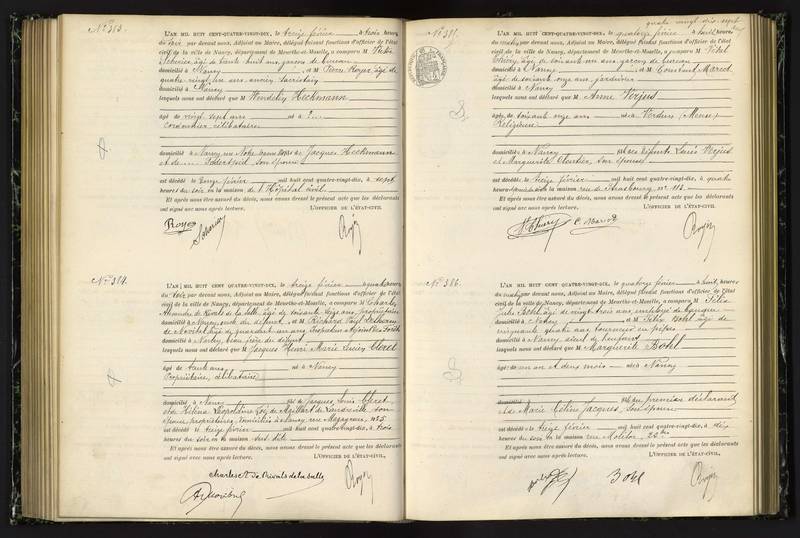 N° 383.
L'AN MIL HUIT CENT QUATRE-VINGT-DIX, le treize février à trois heures
du soir par devant nous, Adjoint au Maire, délégué faisant fonctions d'officier de l'état
civil de la ville de Nancy, département de Meurthe-et-Moselle, a comparu M
âgé de huit ans, garçon de bureau
domicilié à Nancy et M Pierre Royer âgé de
quatre vingt un ans, ancien sacristain
domicilié à Nancy
lesquels nous ont déclaré que M Wendelin Heckmann
âgé de vingt sept ans né à
cordonnier, célibataire
domicilié à Nancy, rue Notre Dame de Jacques Heckmann
et de son épouse
est décédé le février mil huit cent quatre-vingt-dix, à sept
heures du soir en la maison de l'Hôpital civil
Et après nous être assuré du décès, nous avons dressé le présent acte que les déclarants
ont signé avec nous après lecture. L'OFFICIER DE L'ÉTAT-CIVIL.
Royer
N° 384.
L'AN MIL HUIT CENT QUATRE-VINGT-DIX, le treize février à quatre heures
du soir par devant nous, Adjoint au Maire, délégué faisant fonctions d'officier de l'état
civil de la ville de Nancy, département de Meurthe-et-Moselle, a comparu M Charles
Alexandre de Rivals de la Salle, âgé de soixante ans, propriétaire
domicilié à Nancy, du défunt, et M Richard Paul
âgé de quarante un ans, Inspecteur adjoint des Forêts
domicilié à Nancy, beau frère du défunt
lesquels nous ont déclaré que M Jacques Henri Marie Lucien Cleret
âgé de trente ans né à Nancy
Propriétaire, célibataire
domicilié à Nancy de Jacques Louis Cleret
et de Hélène Léopoldine de Maillart de Landreville son
épouse, propriétaires, domiciliés à Nancy rue Mazagran, n° 5
est décédé le treize février mil huit cent quatre-vingt-dix, à trois
heures du soir en la maison sus dite
Et après nous être assuré du décès, nous avons dressé le présent acte que les déclarants
ont signé avec nous après lecture. L'OFFICIER DE L'ÉTAT-CIVIL.
Charles A. de Rivals de la Salle
quatre vingt dix sept
N° 385.
L'AN MIL HUIT CENT QUATRE-VINGT-DIX, le quatorze février à huit heures
du matin par devant nous, Adjoint au Maire, délégué faisant fonctions d'officier de l'état
civil de la ville de Nancy, département de Meurthe-et-Moselle, a comparu M
Thiéry, âgé de soixante un ans, garçon de bureau
domicilié à Nancy et M Constant Marcot
âgé de soixante onze ans, jardinier
domicilié à Nancy
lesquels nous ont déclaré que M Anne Verjus
âgée de soixante onze ans née à Verdun (Meuse)
Religieuse
domiciliée à Nancy des défunts Louis Verjus
et Marguerite Cloutier, son épouse
est décédée le treize février mil huit cent quatre-vingt-dix, à quatre
heures du soir en la maison rue de Strasbourg, n° 113
Et après nous être assuré du décès, nous avons dressé le présent acte que les déclarants
ont signé avec nous après lecture. L'OFFICIER DE L'ÉTAT-CIVIL.
Thiéry C. Marcot
N° 386.
L'AN MIL HUIT CENT QUATRE-VINGT-DIX, le quatorze février à huit heures
du matin par devant nous, Adjoint au Maire, délégué faisant fonctions d'officier de l'état
civil de la ville de Nancy, département de Meurthe-et-Moselle, a comparu M Félix
Jules Bohl, âgé de vingt trois ans, employé de banque
domicilié à Nancy et M Félix Bohl âgé de
cinquante quatre ans tourneur en pipes
domicilié à Nancy, aïeul de l'enfant
lesquels nous ont déclaré que M Marguerite Bohl
âgée de un an et deux mois née à Nancy
du premier déclarant
et de Marie Célina Jacques, son épouse
est décédée le treize février mil huit cent quatre-vingt-dix, à dix
heures du soir en la maison rue Molitor, 25 bis
Et après nous être assuré du décès, nous avons dressé le présent acte que les déclarants
ont signé avec nous après lecture. L'OFFICIER DE L'ÉTAT-CIVIL.
Bohl